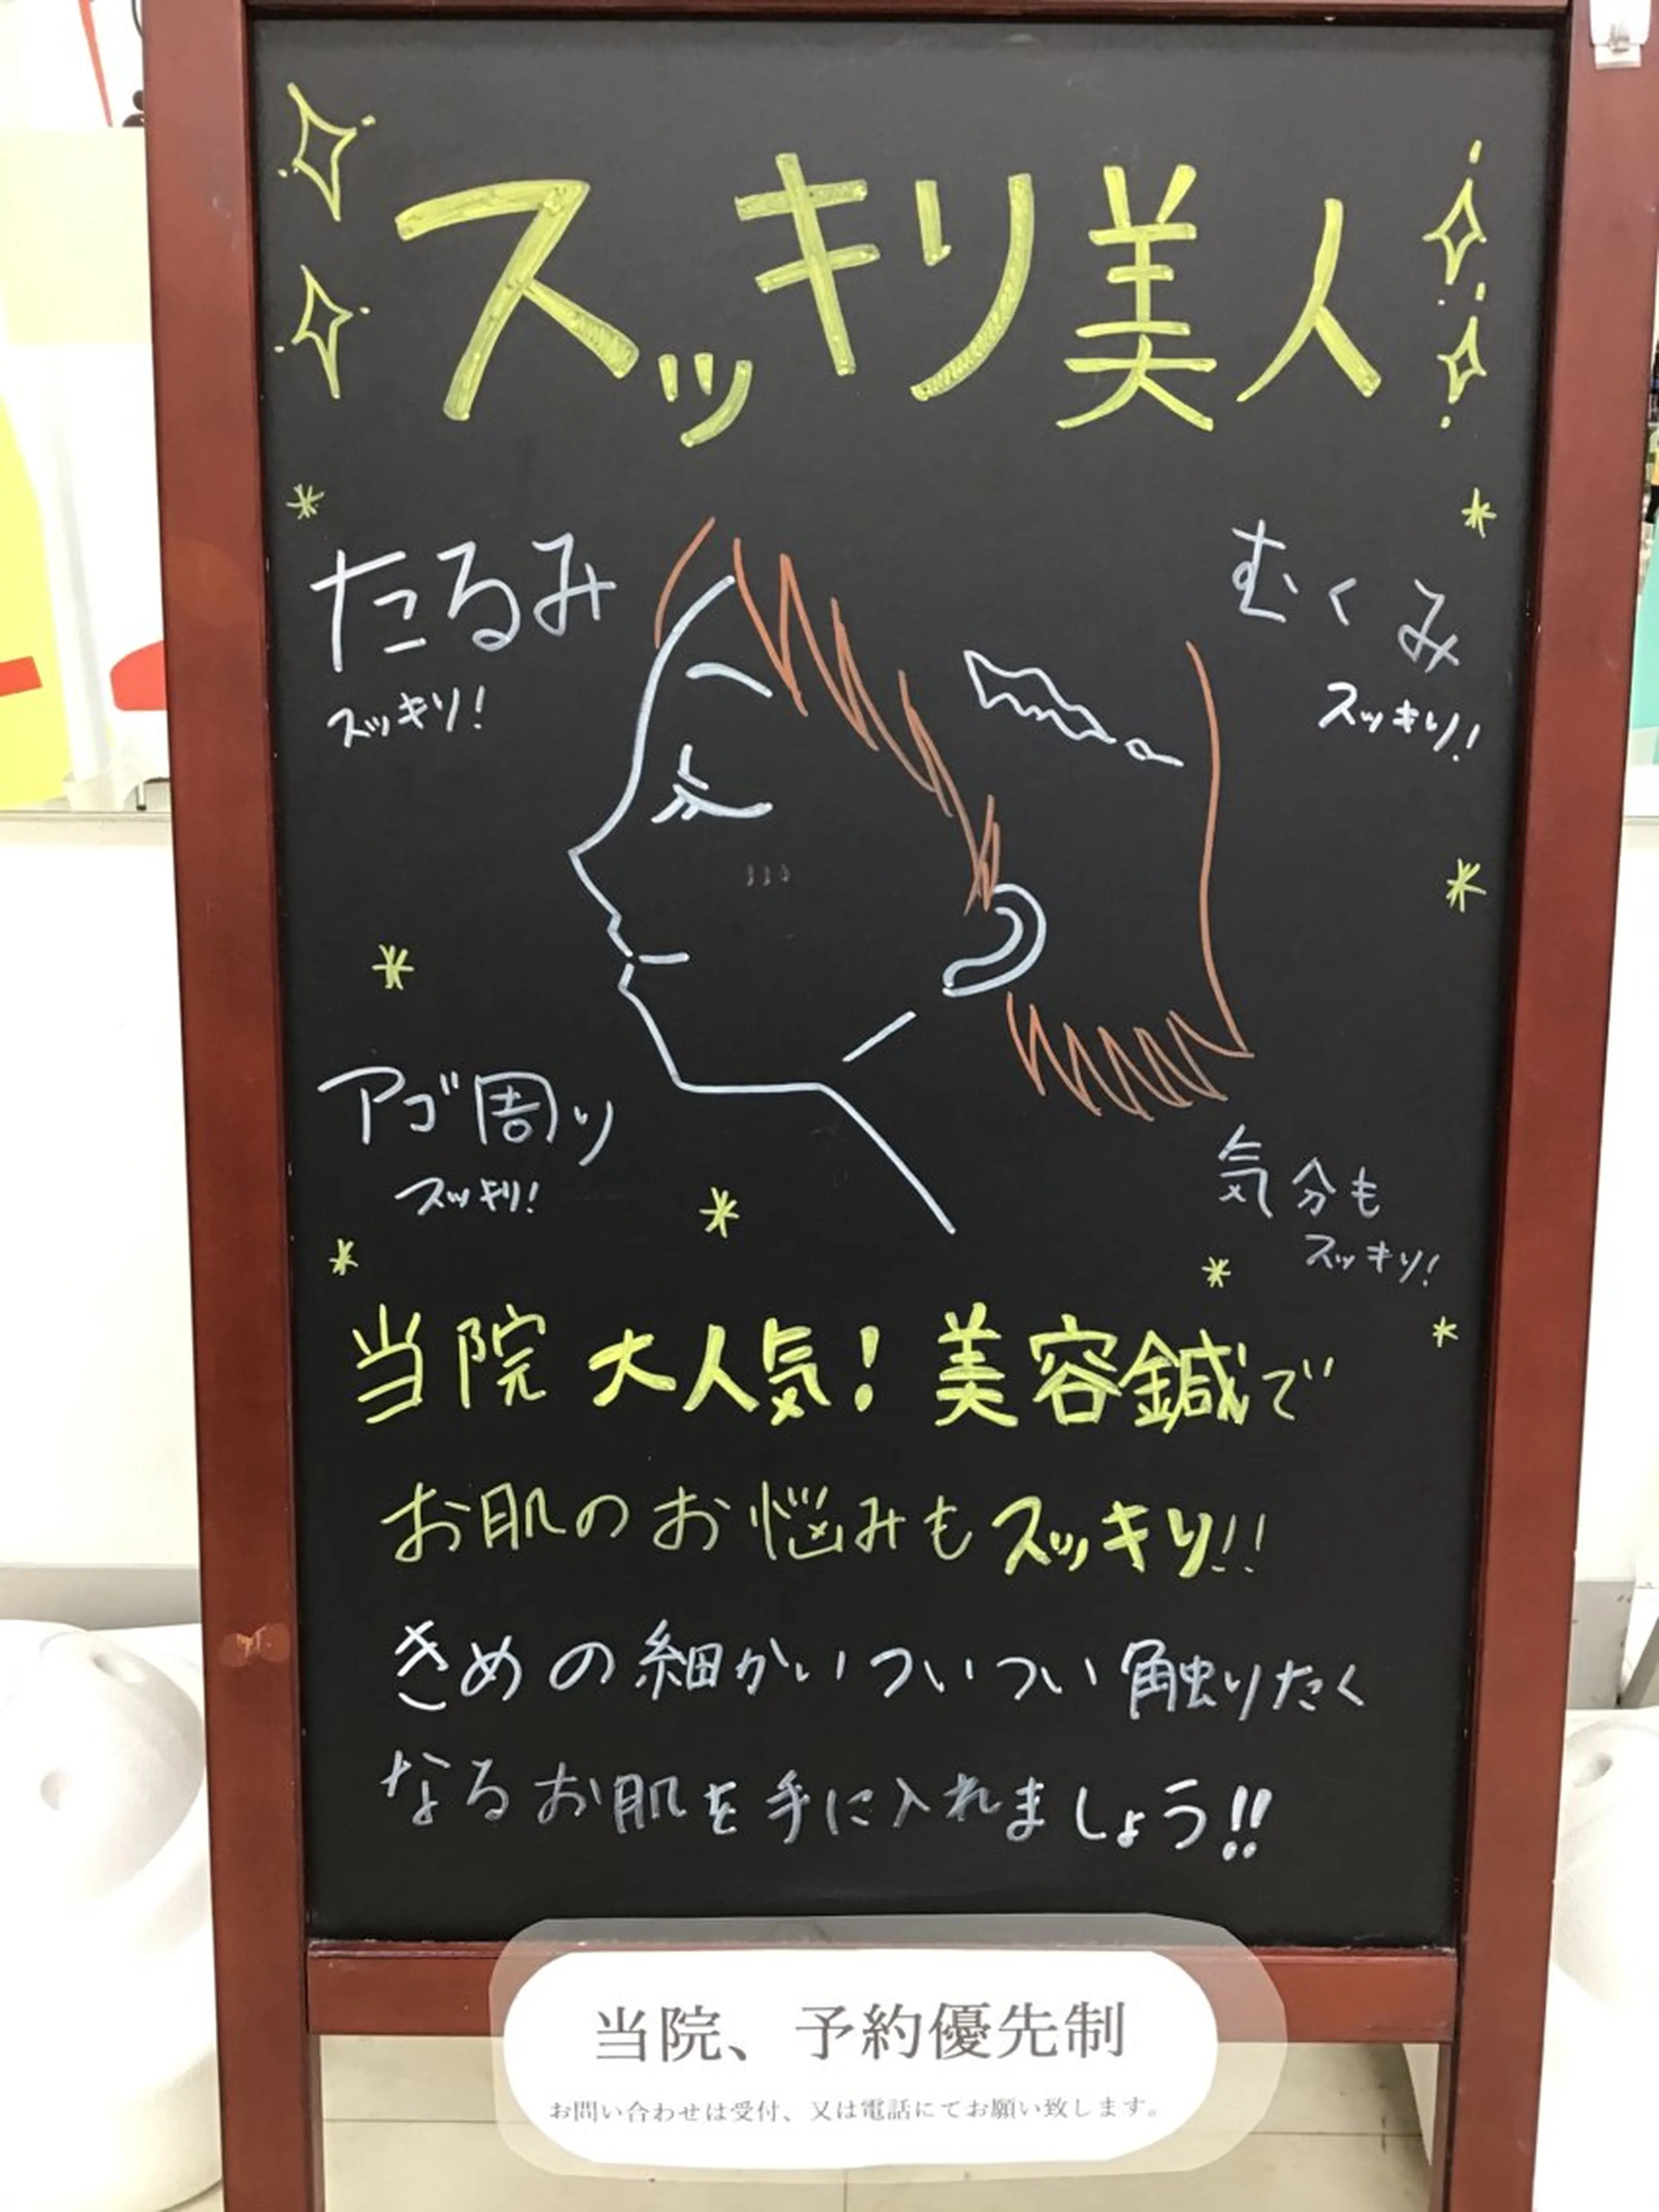 スッキリ美人
たるみ
スッキリ!
むくみ
スッキリ!
アゴ周り
スッキリ!
気分も
スッキリ!
当院 大人気! 美容鍼で
お肌のお悩みもスッキリ!!
きめの細かいついつい触りたく
なるお肌を手に入れましょう!!
当院、予約優先制
お問い合わせは受付、又は電話にてお願い致します。